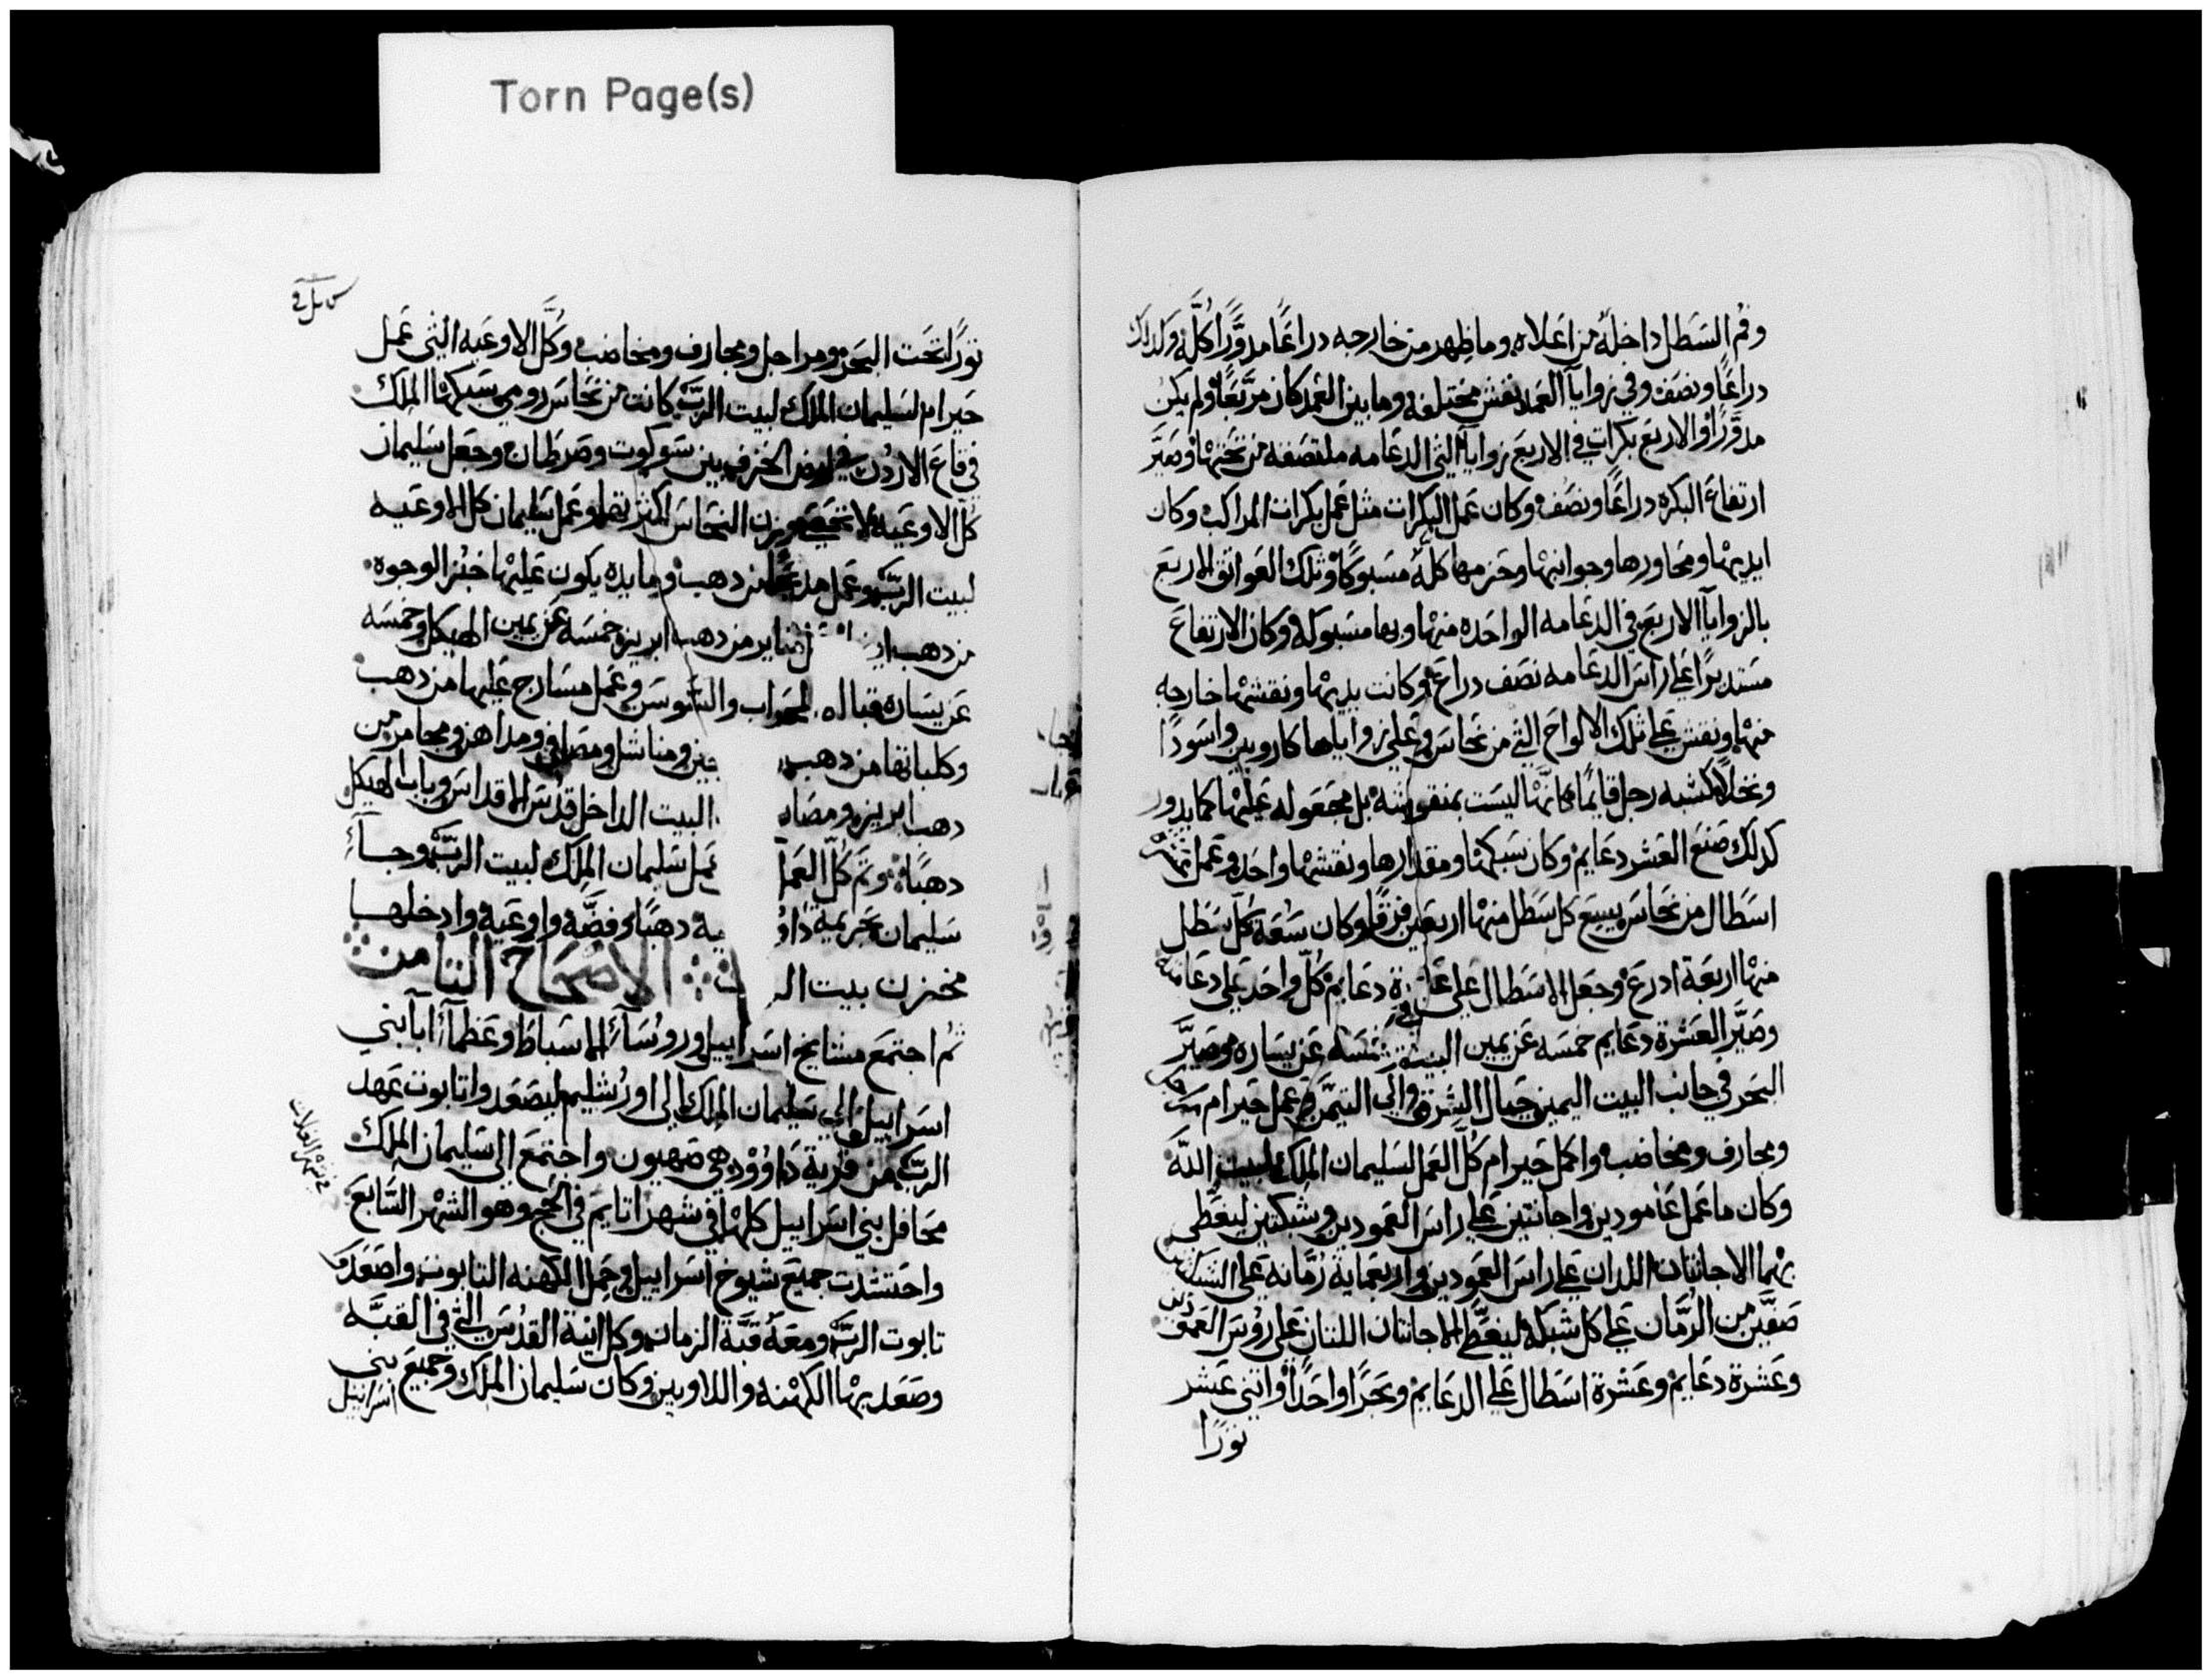 Torn Page(s)
وفم السطل داخله من اعلاه وما ظهر من خارجه دراعًا مدوَّرًا كلّه وكدلك
دراعًا ونصف وفي زوايا العمد نقش مختلفه وما بين العمد كان مربعًا ولم يكن
مدوَّرًا والاربع بكرات في الاربع زوايا التي الدعامه ملتصقه من تحتها وصيَّر
ارتفاع البكره دراعًا ونصف وكان عمل البكرات مثل عمل بكرات المراكب وكان
ايديها ومحاورها وجوانبها وحزمها كله مسبوكًا وتلك العواتق الاربع
بالزوايا الاربع في الدعامه الواحده منها وبها مسبوكه وكان الارتفاع
مستديرًا على راس الدعامه نصف دراع وكانت يديها ونقشها خارجه
منها ونقش على تلك الالواح التي من نحاس وعلى زواياها كاروبين واسودًا
ونخلًا كشبه رجل قايمًا كانها ليست بمنقوشه بل مجعوله عليها كما يدور
كدلك صنع العشر دعايم وكان سبكها ومقدارها ونقشها واحد وعمل عشره
اسطال من نحاس يسع كل سطل منها اربعين فرقًا وكان سعة كل سطل
منها اربعة ادرع وجعل الاسطال على دعايم كل واحد على دعامه
وصيَّر العشرة دعايم خمسه عن يمين البيت وخمسه عن يساره وصيَّر
البحر في جانب البيت اليمين حيال الشرق والى التيمن وعمل حيرام
ومجارف ومخاضب واكمل حيرام كل العمل لسليمان الملك لبيت الله
وكان ما عمل عامودين واجانتين على راس العمودين وشبكتين ليغطي
بهما الاجانتان اللدان على راس العمودين واربعماية رمانه على الشبكتين
صفين من الرمان على كل شبكه ليغطي الاجانتان اللتان على روس العمودين
وعشرة دعايم وعشرة اسطال على الدعايم وبحرًا واحدًا واثني عشر
ثورًا
ثورًا تحت البحر ومراجل ومجارف ومخاضب وكل الاوعيه التي عمل
حيرام لسليمان الملك لبيت الرب كانت من نحاس رومي سبكها الملك
في قاع الاردن في الخزف بين سوكوت وصرطان وجعل سليمان
كل الاوعيه لا تحصى وزن النحاس وعمل سليمان كل الاوعيه
لبيت الرب وعمل مدبحًا من دهب ومايده يكون عليها خبز الوجوه
من دهب منايز من دهب ابريز خمسه عن يمين الهيكل وخمسه
عن يساره قباله المحراب والسوسن وعمل مسارج عليها من دهب
وكلباتها من دهب ومناشل ومصافي ومداهن ومجامر من
دهب ابريز ومصا البيت الداخل قدس الاقداس وباب الهيكل
دهبًا وتم كل العمل عمل سليمان الملك لبيت الرب وجآء
سليمان بحرمية داو دهبًا وفضّه واوعيه وادخلها
مخزن بيت الرب الاصحاح الثامن
ثم اجتمع مشايخ اسراييل وروسآء الاسباط وعظمآء ابآء بني
اسراييل الى سليمان الملك الى اورشليم ليصعدوا تابوت عهد
الرب من قرية داوود هي صهيون واجتمع الى سليمان الملك
محافل بني اسراييل كلها في شهر اتانيم في الحج وهو الشهر السابع
واحتشدت جميع شيوخ اسراييل وحمل الكهنه التابوت واصعدوا
تابوت الرب ومعه قبة الزمان وكل انية القدس التي في القبه
وصعد بها الكهنه واللاويين وكان سليمان الملك وجميع بني
اسراييل